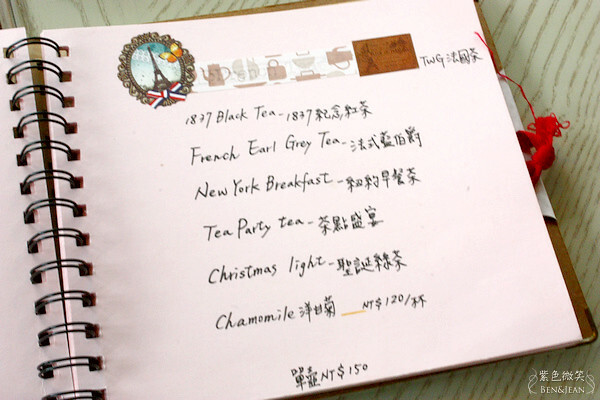 TWG 法國茶
1837 Black Tea - 1837 紀念紅茶
French Earl Grey Tea - 法式藍伯爵
New York Breakfast - 紐約早餐茶
Tea Party tea - 茶點盛宴
Christmas light - 聖誕綠茶
Chamomile 洋甘菊 NT$120/杯
單壺 NT$150
紫色微笑
BEN&JEAN